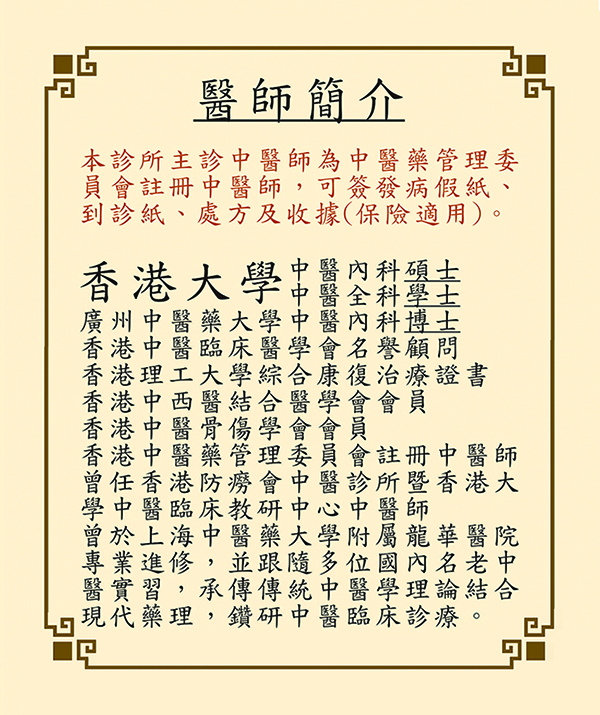 醫師簡介
本診所主診中醫師為中醫藥管理委
員會註冊中醫師，可簽發病假紙、
到診紙、處方及收據(保險適用)。
香港大學中醫內科碩士
中醫全科學士
廣州中醫藥大學中醫內科博士
香港中醫臨床醫學會名譽顧問
香港理工大學綜合康復治療證書
香港中西醫結合醫學會會員
香港中醫骨傷學會會員
香港中醫藥管理委員會註冊中醫師
曾任香港防癆會中醫診所暨香港大
學中醫臨床教研中心中醫師
曾於上海中醫藥大學附屬龍華醫院
專業進修，並跟隨多位國內名老中
醫實習，承傳傳統中醫學理論結合
現代藥理，鑽研中醫臨床診療。